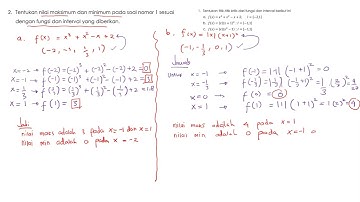 2. Tentukan nilai maksimum dan minimum pada soal nomor 1 sesuai
dengan fungsi dan interval yang diberikan.
1. Tentukan titik-titik kritis dari fungsi dan interval berikut ini:
a. f(x) = x³ + x² - x + 2
(-2, -1, 1/3, 1)
x = -2 → f(-2) = (-2)³ + (-2)² - (-2) + 2 = 0
x = -1 → f(-1) = (-1)³ + (-1)² - (-1) + 2 = 3
x = 1/3 → f(1/3) = (1/3)³ + (1/3)² - (1/3) + 2 = 1.8
x = 1 → f(1) = 3
Jadi:
nilai maks adalah 3 pada x = -1 dan x = 1
nilai min adalah 0 pada x = -2
b. f(x) = |x|(x+1)²
(-1, -1/3, 0, 1)
Jawab
Untuk x = -1 → f(-1) = |-1| (-1+1)² = 0
x = -1/3 → f(-1/3) = |-1/3| (-1/3+1)² = 1/3 (2/3)² = 4/27
x = 0 → f(0) = 0
x = 1 → f(1) = |1| (1+1)² = 1(2)² = 4
nilai maks adalah 4 pada x = 1
nilai min adalah 0 pada x = -1